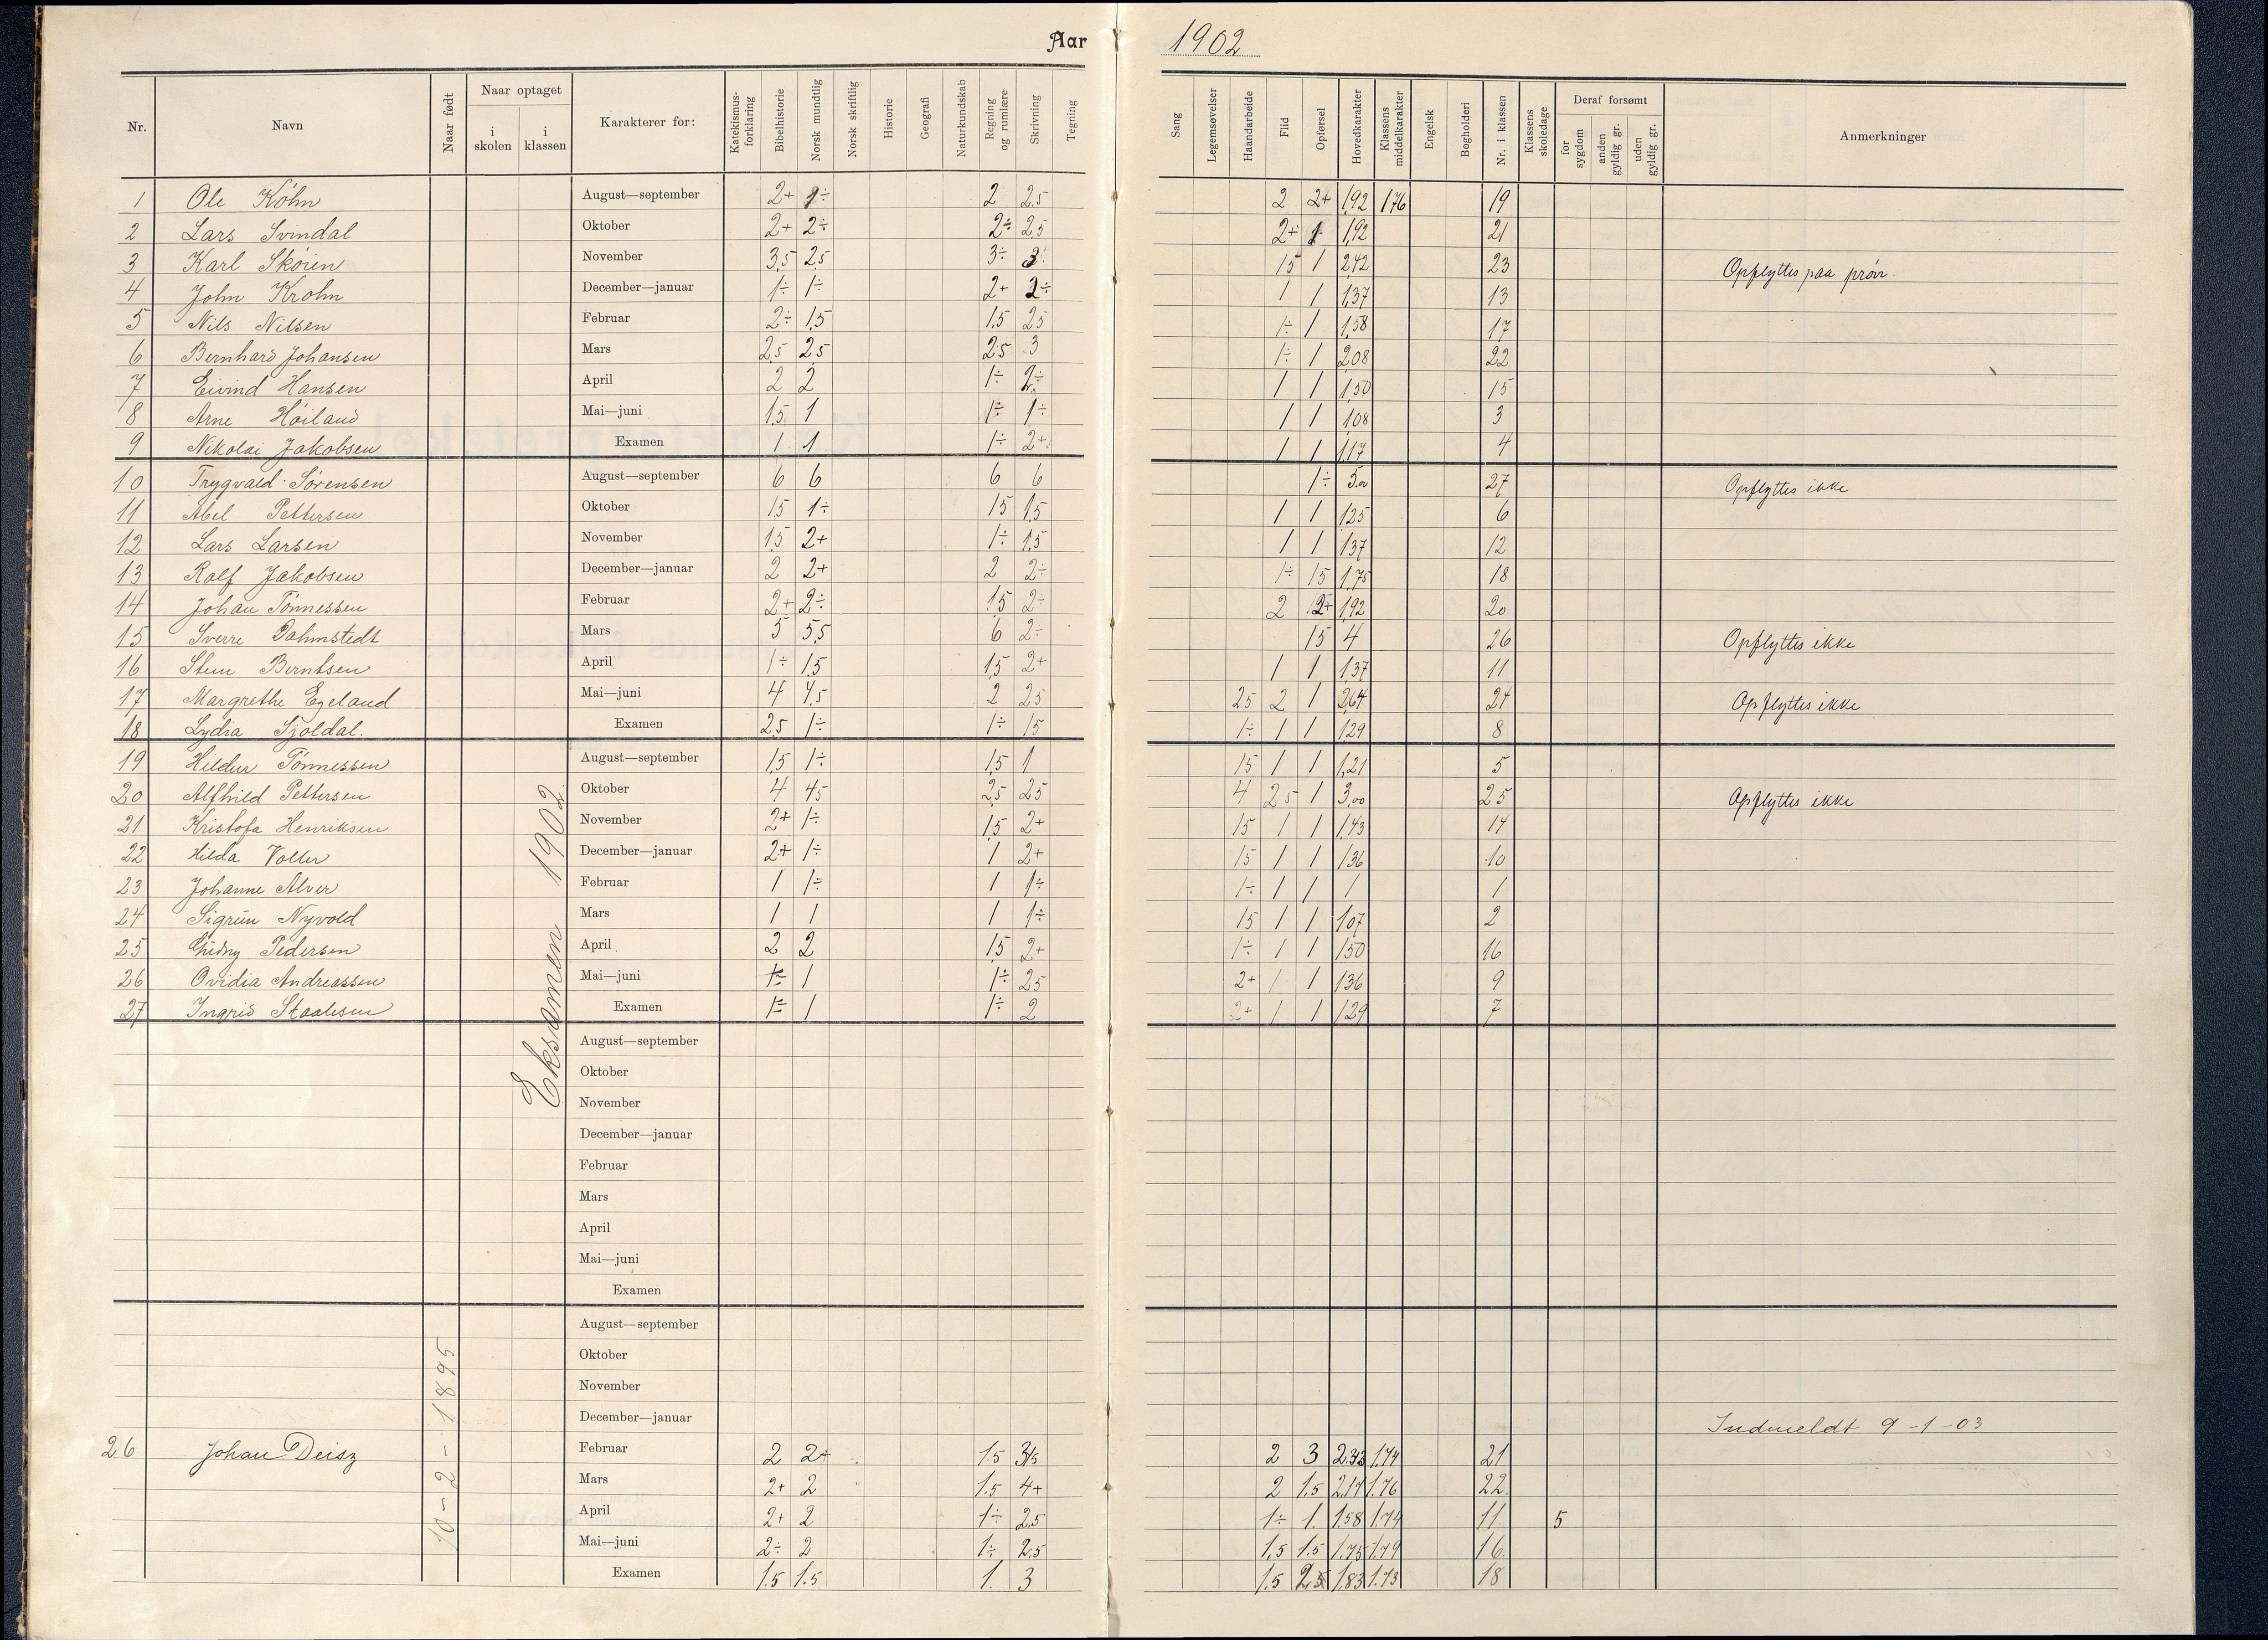 Aar 1902
Nr. Navn Naar født Naar optaget i skolen i klassen Karakterer for: Katekismus-forklaring Bibelhistorie Norsk mundtlig Norsk skriftlig Historie Geografi Naturkundskab Regning og rumlære Skrivning Tegning Sang Legemsøvelser Haandarbeide Flid Opførsel Hovedkarakter Klassens middelkarakter Engelsk Bogholderi Nr. i klassen Klassens skoledage Deraf forsømt for sygdom anden gyldig gr. uden gyldig gr. Anmerkninger
1 Ole Köhn August—september 2+ 1÷ 2 2,5 2 2+ 1,92 1,76 19
2 Lars Svindal Oktober 2+ 2÷ 2÷ 2,5 2+ 1 1,92 21
3 Karl Sköien November 3,5 2,5 3÷ 3÷ 1,5 1 2,42 23 Opflyttes paa prøve.
4 John Krohn December—januar 1÷ 1÷ 2+ 2÷ 1 1 1,37 13
5 Nils Nilsen Februar 2÷ 1,5 1,5 2,5 1÷ 1 1,58 17
6 Bernhard Johansen Mars 2,5 2,5 2,5 3 1÷ 1 2,08 22
7 Eivind Hansen April 2 2 1÷ 2÷ 1 1 1,50 15
8 Arne Höiland Mai—juni 1,5 1 1÷ 1÷ 1 1 1,08 3
9 Nikolai Jakobsen Examen 1 1 1÷ 2+ 1 1 1,17 4
10 Trygvald Sörensen August—september 6 6 6 6 1÷ 5,00 27 Opflyttes ikke
11 Abel Pettersen Oktober 1,5 1÷ 1,5 1,5 1 1 1,25 6
12 Lars Larsen November 1,5 2+ 1÷ 1,5 1 1 1,37 12
13 Ralf Jakobsen December—januar 2 2+ 2 2÷ 1÷ 1,5 1,75 18
14 Johan Tönnessen Februar 2+ 2÷ 1,5 2÷ 2 2+ 1,92 20
15 Sverre Dahmstedt Mars 5 5,5 6 2÷ 1,5 4 26 Opflyttes ikke
16 Sten Berntsen April 1÷ 1,5 1,5 2+ 1 1 1,37 11
17 Margrethe Egeland Mai—juni 4 4,5 2 2,5 2,5 2 1 2,64 24 Opflyttes ikke
18 Lydia Sjöldal. Examen 2,5 1÷ 1÷ 1,5 1÷ 1 1 1,29 8
19 Hildur Tönnessen August—september 1,5 1÷ 1,5 1 1,5 1 1 1,21 5
20 Alfhild Pettersen Oktober 4 4,5 2,5 2,5 4 2,5 1 3,00 25 Opflyttes ikke
21 Kristofa Henriksen November 2+ 1÷ 1,5 2+ 1,5 1 1 1,43 14
22 Hilda Voller December—januar 2+ 1÷ 1 2+ 1,5 1 1 1,36 10
23 Johanne Alver Februar 1 1÷ 1 1÷ 1÷ 1 1 1 1
24 Sigrun Nyvold Mars 1 1 1 1÷ 1,5 1 1 1,07 2
25 Gudny Pedersen April 2 2 1,5 2+ 1÷ 1 1 1,50 16
26 Ovidia Andreassen Mai—juni 1÷ 1 1÷ 2,5 2+ 1 1 1,36 9
27 Ingrid Staalesen Examen 1÷ 1 1÷ 2 2+ 1 1 1,29 7
Eksamen 1902
August—september
Oktober
November
December—januar
Februar
Mars
April
Mai—juni
Examen
August—september
Oktober
November
December—januar Indmeldt 9-1-03
26 Johan Deisz 10-2-1895 Februar 2 2+ 1.5 3,5 2 3 2.33 1.74 21
Mars 2+ 2 1.5 4+ 2 1.5 2.17 1.76 22.
April 2+ 2 1÷ 2.5 1÷ 1. 1.58 1.74 11. 5
Mai—juni 2÷ 2 1÷ 2.5 1.5 1.5 1.75 1.79 16.
Examen 1.5 1.5 1. 3 1.5 2.5 1.83 1.73 18